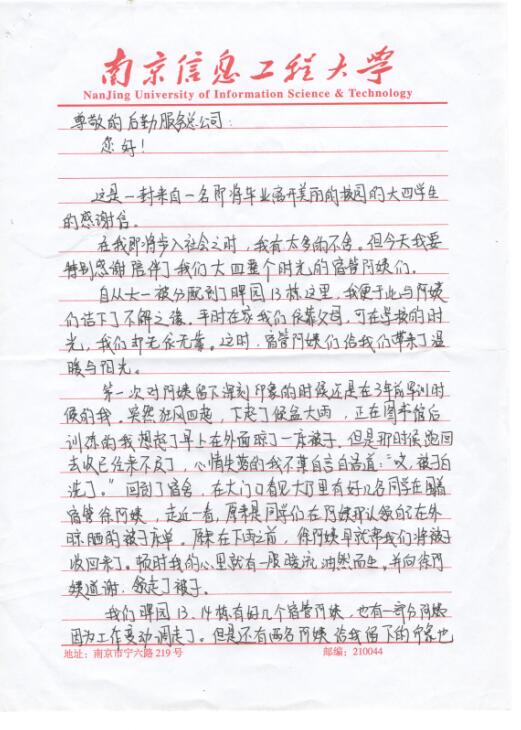 南京信息工程大学
NanJing University of Information Science & Technology
尊敬的后勤服务总公司：
您好！
这是一封来自一名即将毕业离开美丽的校园的大四学生
的感谢信。
在我即将步入社会之时，我有太多的不舍。但今天我要
特别感谢陪伴了我们大四整个时光的宿管阿姨们。
自从大一被分配到了晖园13栋这里，我便于此与阿姨
们结下了不解之缘。平时在家我们依靠父母，可在学校的时
光，我们却无依无靠。这时，宿管阿姨们给我们带来了温
暖与阳光。
第一次对阿姨留下深刻印象的时候还是在3年前军训时
候的我。突然狂风四起，下起了倾盆大雨，正在图书馆后
训练的我想起了早上在外面晾了一床被子，但是那时候跑回
去收已经来不及了，心情失落的我不禁自言自语道：“哎，被子白
洗了。”回到了宿舍，在大门口看见大厅里有好几名同学在围着
宿管徐阿姨，走近一看，原来是同学们在阿姨那认领自己在外
晾晒的被子床单。原来在下雨之前，徐阿姨早就帮我们将被子
收回来了。顿时我的心里就有一股暖流油然而生。并向徐阿
姨道谢，领走了被子。
我们晖园13、14栋有好几个宿管阿姨，也有一部分阿姨
因为工作变动调走了。但是还有两名阿姨给我留下的印象也
地址：南京市宁六路219号 邮编：210044